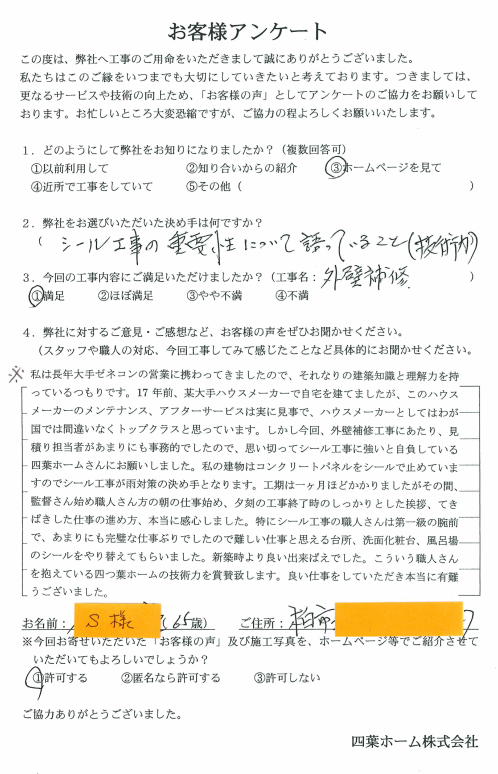 お客様アンケート
この度は、弊社へ工事のご用命をいただきまして誠にありがとうございました。
私たちはこのご縁をいつまでも大切にしていきたいと考えております。つきましては、
更なるサービスや技術の向上ため、「お客様の声」としてアンケートのご協力をお願いして
おります。お忙しいところ大変恐縮ですが、ご協力の程よろしくお願いいたします。
1．どのようにして弊社をお知りになりましたか？（複数回答可）
①以前利用して ②知り合いからの紹介 ③ホームページを見て
④近所で工事をしていて ⑤その他（ ）
2．弊社をお選びいただいた決め手は何ですか？
（ シール工事の重要性について語っていること（技術力）
3．今回の工事内容にご満足いただけましたか？（工事名： 外壁補修 ）
①満足 ②ほぼ満足 ③やや不満 ④不満
4．弊社に対するご意見・ご感想など、お客様の声をぜひお聞かせください。
（スタッフや職人の対応、今回工事してみて感じたことなど具体的にお聞かせください。
※ 私は長年大手ゼネコンの営業に携わってきましたので、それなりの建築知識と理解力を持
っているつもりです。17 年前、某大手ハウスメーカーで自宅を建てましたが、このハウス
メーカーのメンテナンス、アフターサービスは実に見事で、ハウスメーカーとしてはわが
国では間違いなくトップクラスと思っています。しかし今回、外壁補修工事にあたり、見
積り担当者があまりにも事務的でしたので、思い切ってシール工事に強いと自負している
四葉ホームさんにお願いしました。私の建物はコンクリートパネルをシールで止めていま
すのでシール工事が雨対策の決め手となります。工期は一ヶ月ほどかかりましたがその間、
監督さん始め職人さん方の朝の仕事始め、夕刻の工事終了時のしっかりとした挨拶、てき
ぱきした仕事の進め方、本当に感心しました。特にシール工事の職人さんは第一級の腕前
で、あまりにも完璧な仕事ぶりでしたので難しい仕事と思える台所、洗面化粧台、風呂場
のシールをやり替えてもらいました。新築時より良い出来ばえでした。こういう職人さん
を抱えている四つ葉ホームの技術力を賞賛致します。良い仕事をしていただき本当に有難
うございました。
お名前： S 様 （65歳） ご住所： 柏市
※今回お寄せいただいた「お客様の声」及び施工写真を、ホームページ等でご紹介させて
いただいてもよろしいでしょうか？
①許可する ②匿名なら許可する ③許可しない
ご協力ありがとうございました。
四葉ホーム株式会社